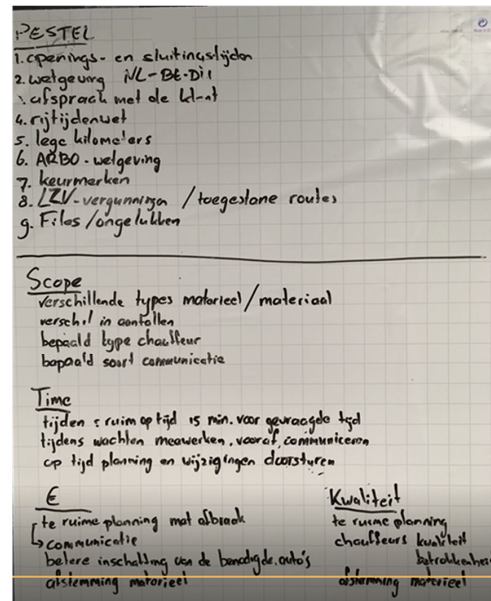 PESTEL
1. openings- en sluitingstijden
2. wetgeving NL-BE-Dil
afspraak met de kl-nt
4. rijtijdenwet
5. lege kilometers
6. ARBO-wetgeving
7. keurmerken
8. LZV-vergunningen / toegestane routes
9. Files/ongelukken
Scope
verschillende types materieel/materiaal
verschil in aantallen
bepaald type chauffeur
bepaald soort communicatie
Time
tijden : ruim op tijd 15 min. voor gevraagde tijd
tijdens wachten meewerken, vooraf communiceren
op tijd planning en wijzigingen doorsturen
€
te ruime planning met afbraak
↳ communicatie
betere inschatting van de benodigde auto's
afstemming materieel
Kwaliteit
te ruime planning
chauffeurs kwaliteit
afstemming materieel